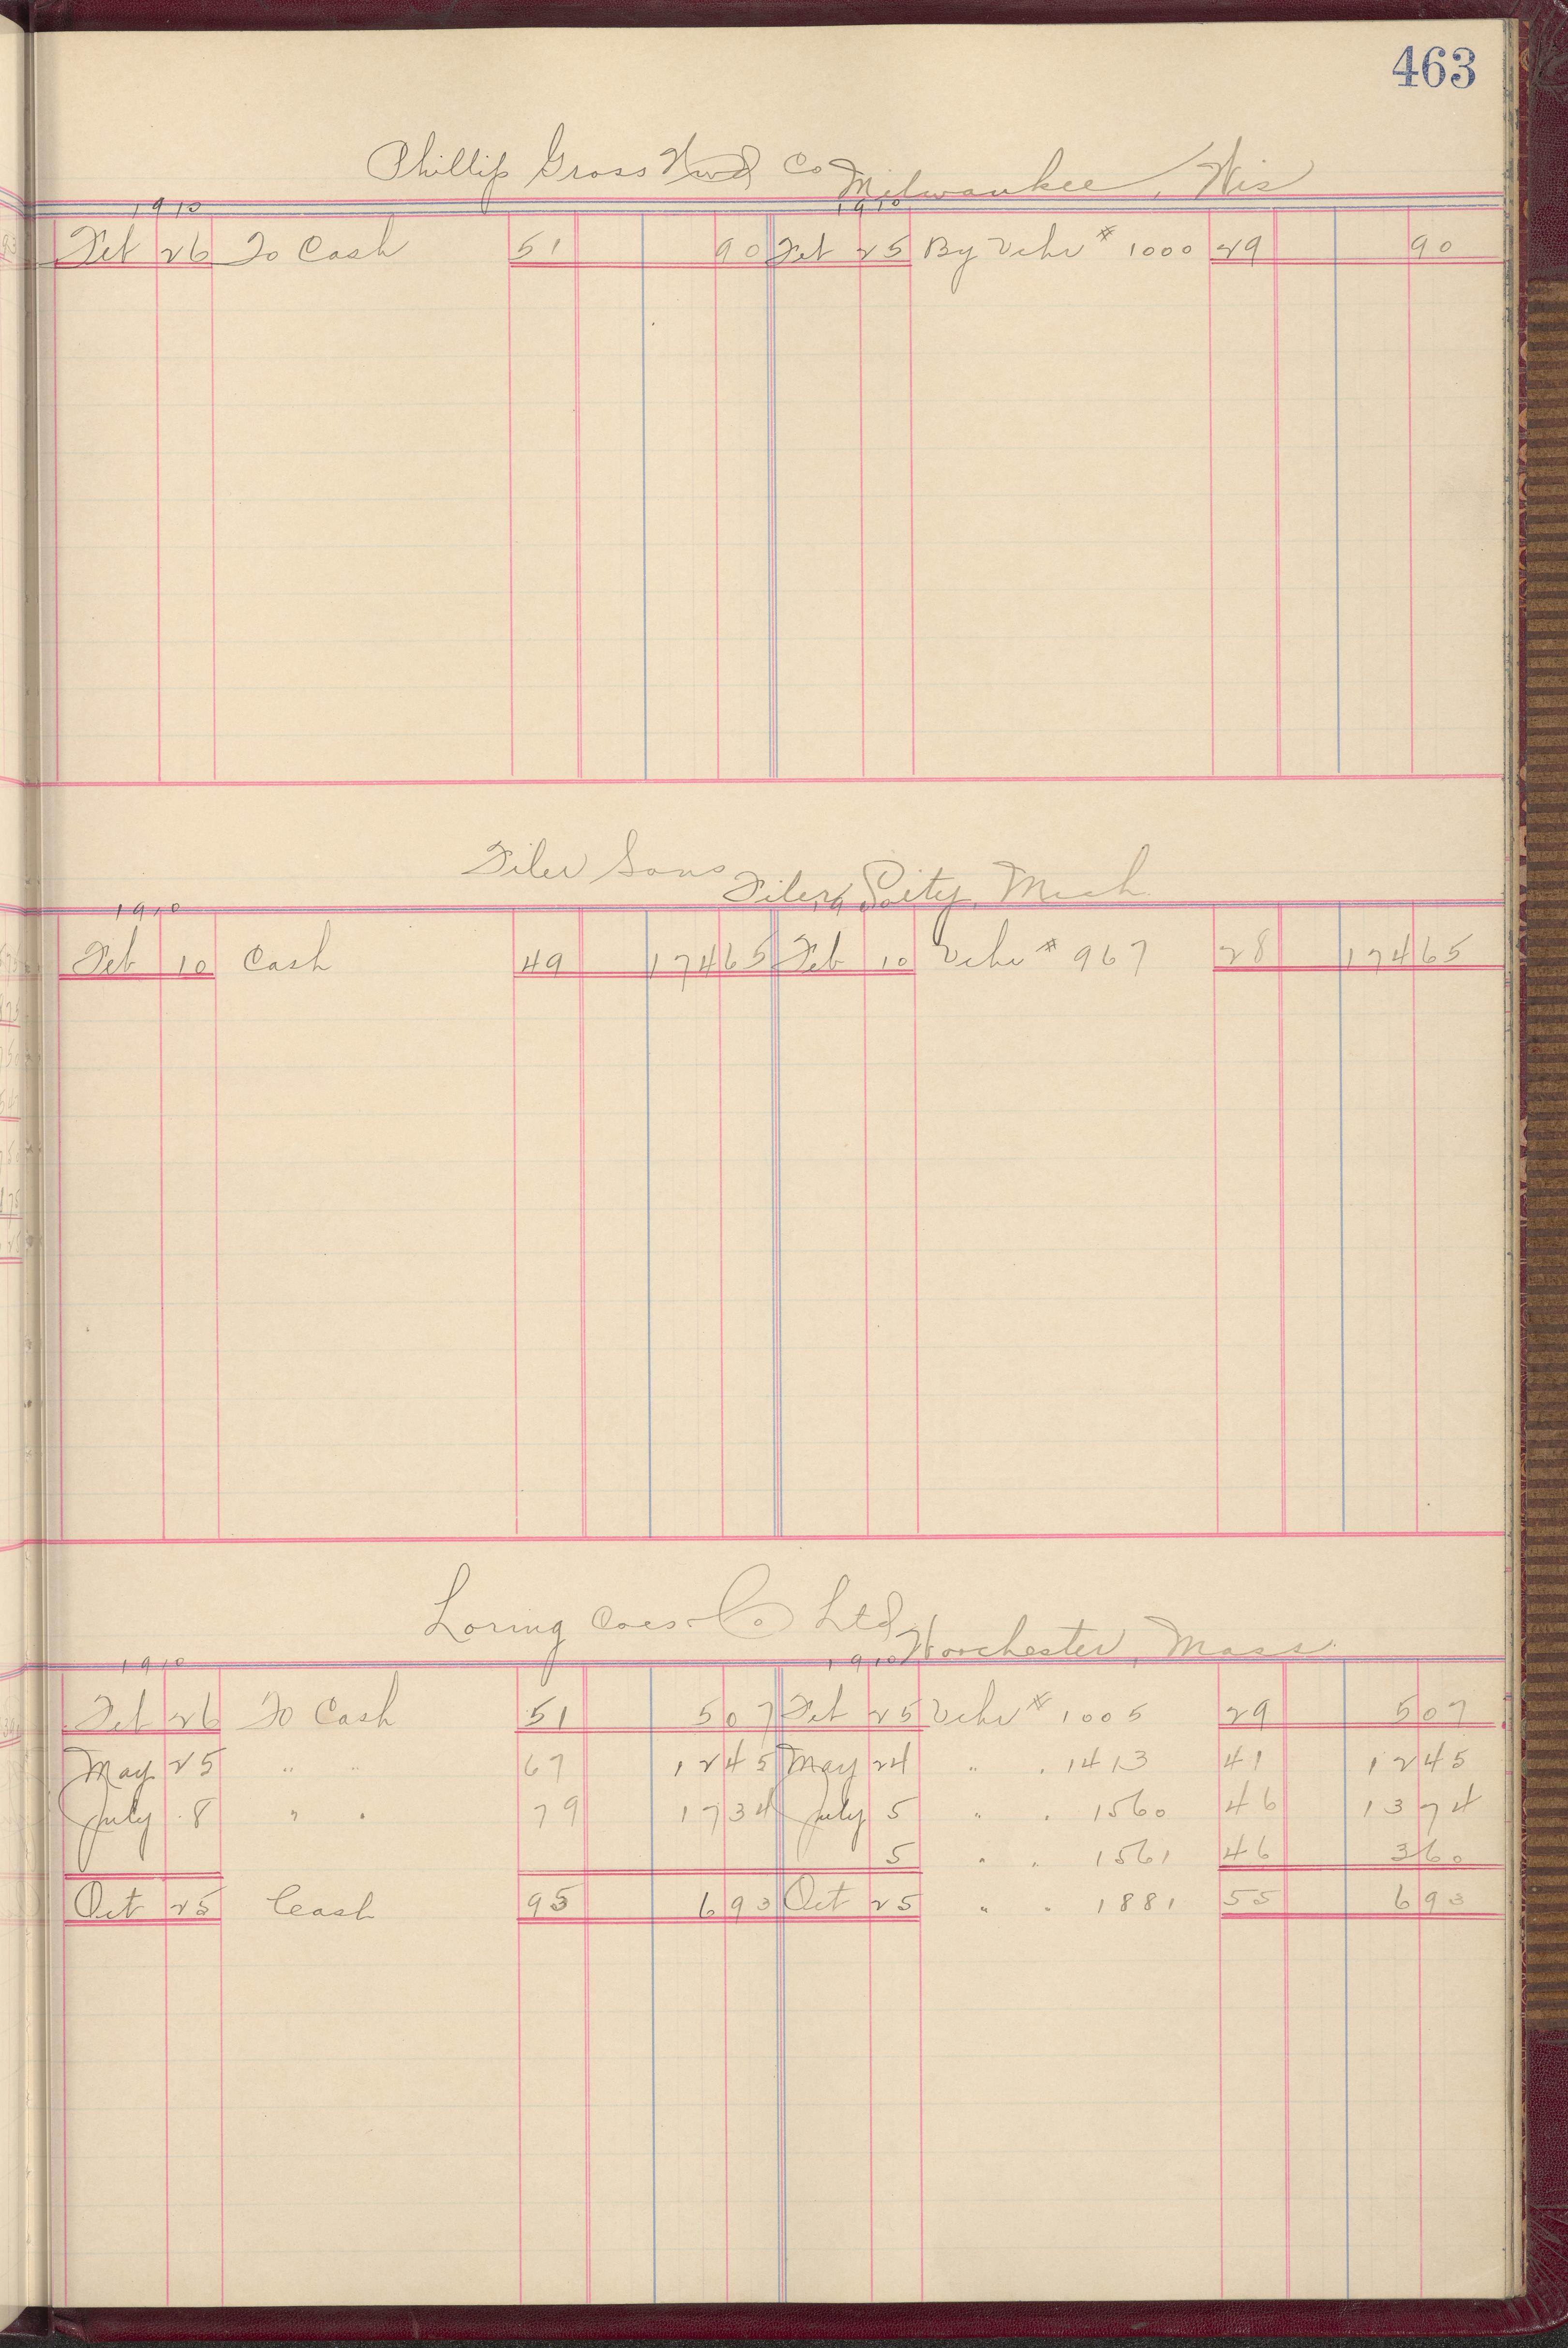 463
Phillip Gross Hwd Co
Milwaukee, Wis
1910 1910
Feb 26 To Cash 51 90 Feb 25 By Vchr # 1000 29 90
Filer Sons
Filer City, Mich
1910
Feb 10 Cash 49 174 65 Feb 10 Vchr # 967 28 174 65
Loring Coes & Co Ltd
Worchester, Mass.
1910 1910
Feb 26 To Cash 51 5 07 Feb 25 Vchr # 1005 29 5 07
May 25 " " 67 12 45 May 24 " " 1413 41 12 45
July 8 " " 79 17 34 July 5 " " 1560 46 13 74
5 " " 1561 46 3 60
Oct 25 Cash 95 6 93 Oct 25 " " 1881 55 6 93